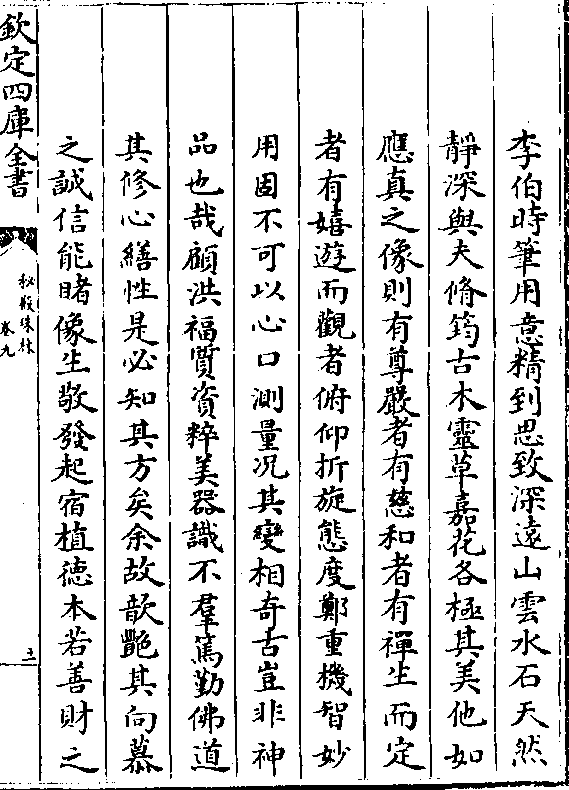 李伯時筆用意精到思致深遠山雲水石天然
靜深與夫脩筠古木靈草嘉花各極其美他如
應真之像則有尊嚴者有慈和者有禪生而定
者有嬉遊而觀者俯仰折旋態度鄭重機智妙
用固不可以心口測量况其變相奇古豈非神
品也哉顧洪福質資粹美器識不羣篤勤佛道
其修心繕性是必知其方矣余故歆艷其向慕
之誠信能睹像生敬發起宿植徳本若善財之
欽定四庫全書
秘殿珠林
卷九
十一